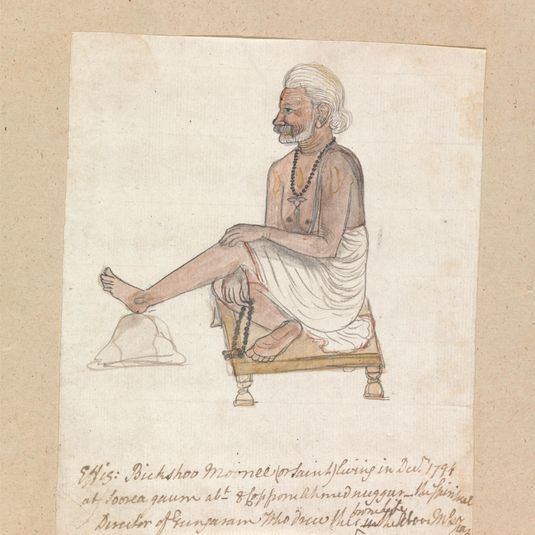 Effig: Bickshoo Moonee (or Saint) living in Decr. 1794
at Soorea gaum abt. 8 Cos from Ahmednuggur _ the Spiritual
Director of Gungaram Who Drew this in the Above